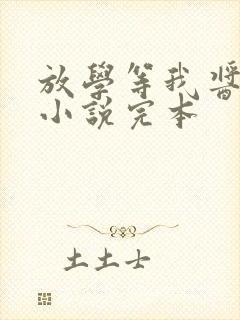 放學等我醬
小說完本
土土士